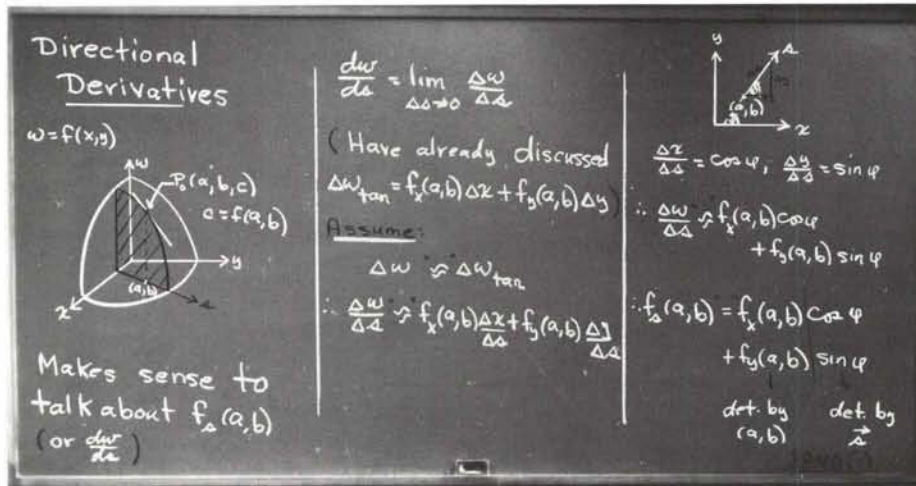 Directional
Derivatives
w = f(x,y)
w
P₀(a,b,c)
c = f(a,b)
y
(a,b)
s
x
Makes sense to
talk about f_s(a,b)
(or dw/ds)
dw/ds = lim Δs→0 Δw/Δs
(Have already discussed
Δw_tan = f_x(a,b)Δx + f_y(a,b)Δy)
Assume:
Δw ≈ Δw_tan
∴ Δw/Δs ≈ f_x(a,b) Δx/Δs + f_y(a,b) Δy/Δs
y
s
(a,b)
φ
x
Δx/Δs = cos φ, Δy/Δs = sin φ
∴ Δw/Δs ≈ f_x(a,b) cos φ
+ f_y(a,b) sin φ
∴ f_s(a,b) = f_x(a,b) cos φ
+ f_y(a,b) sin φ
det. by det. by
(a,b) s⃗